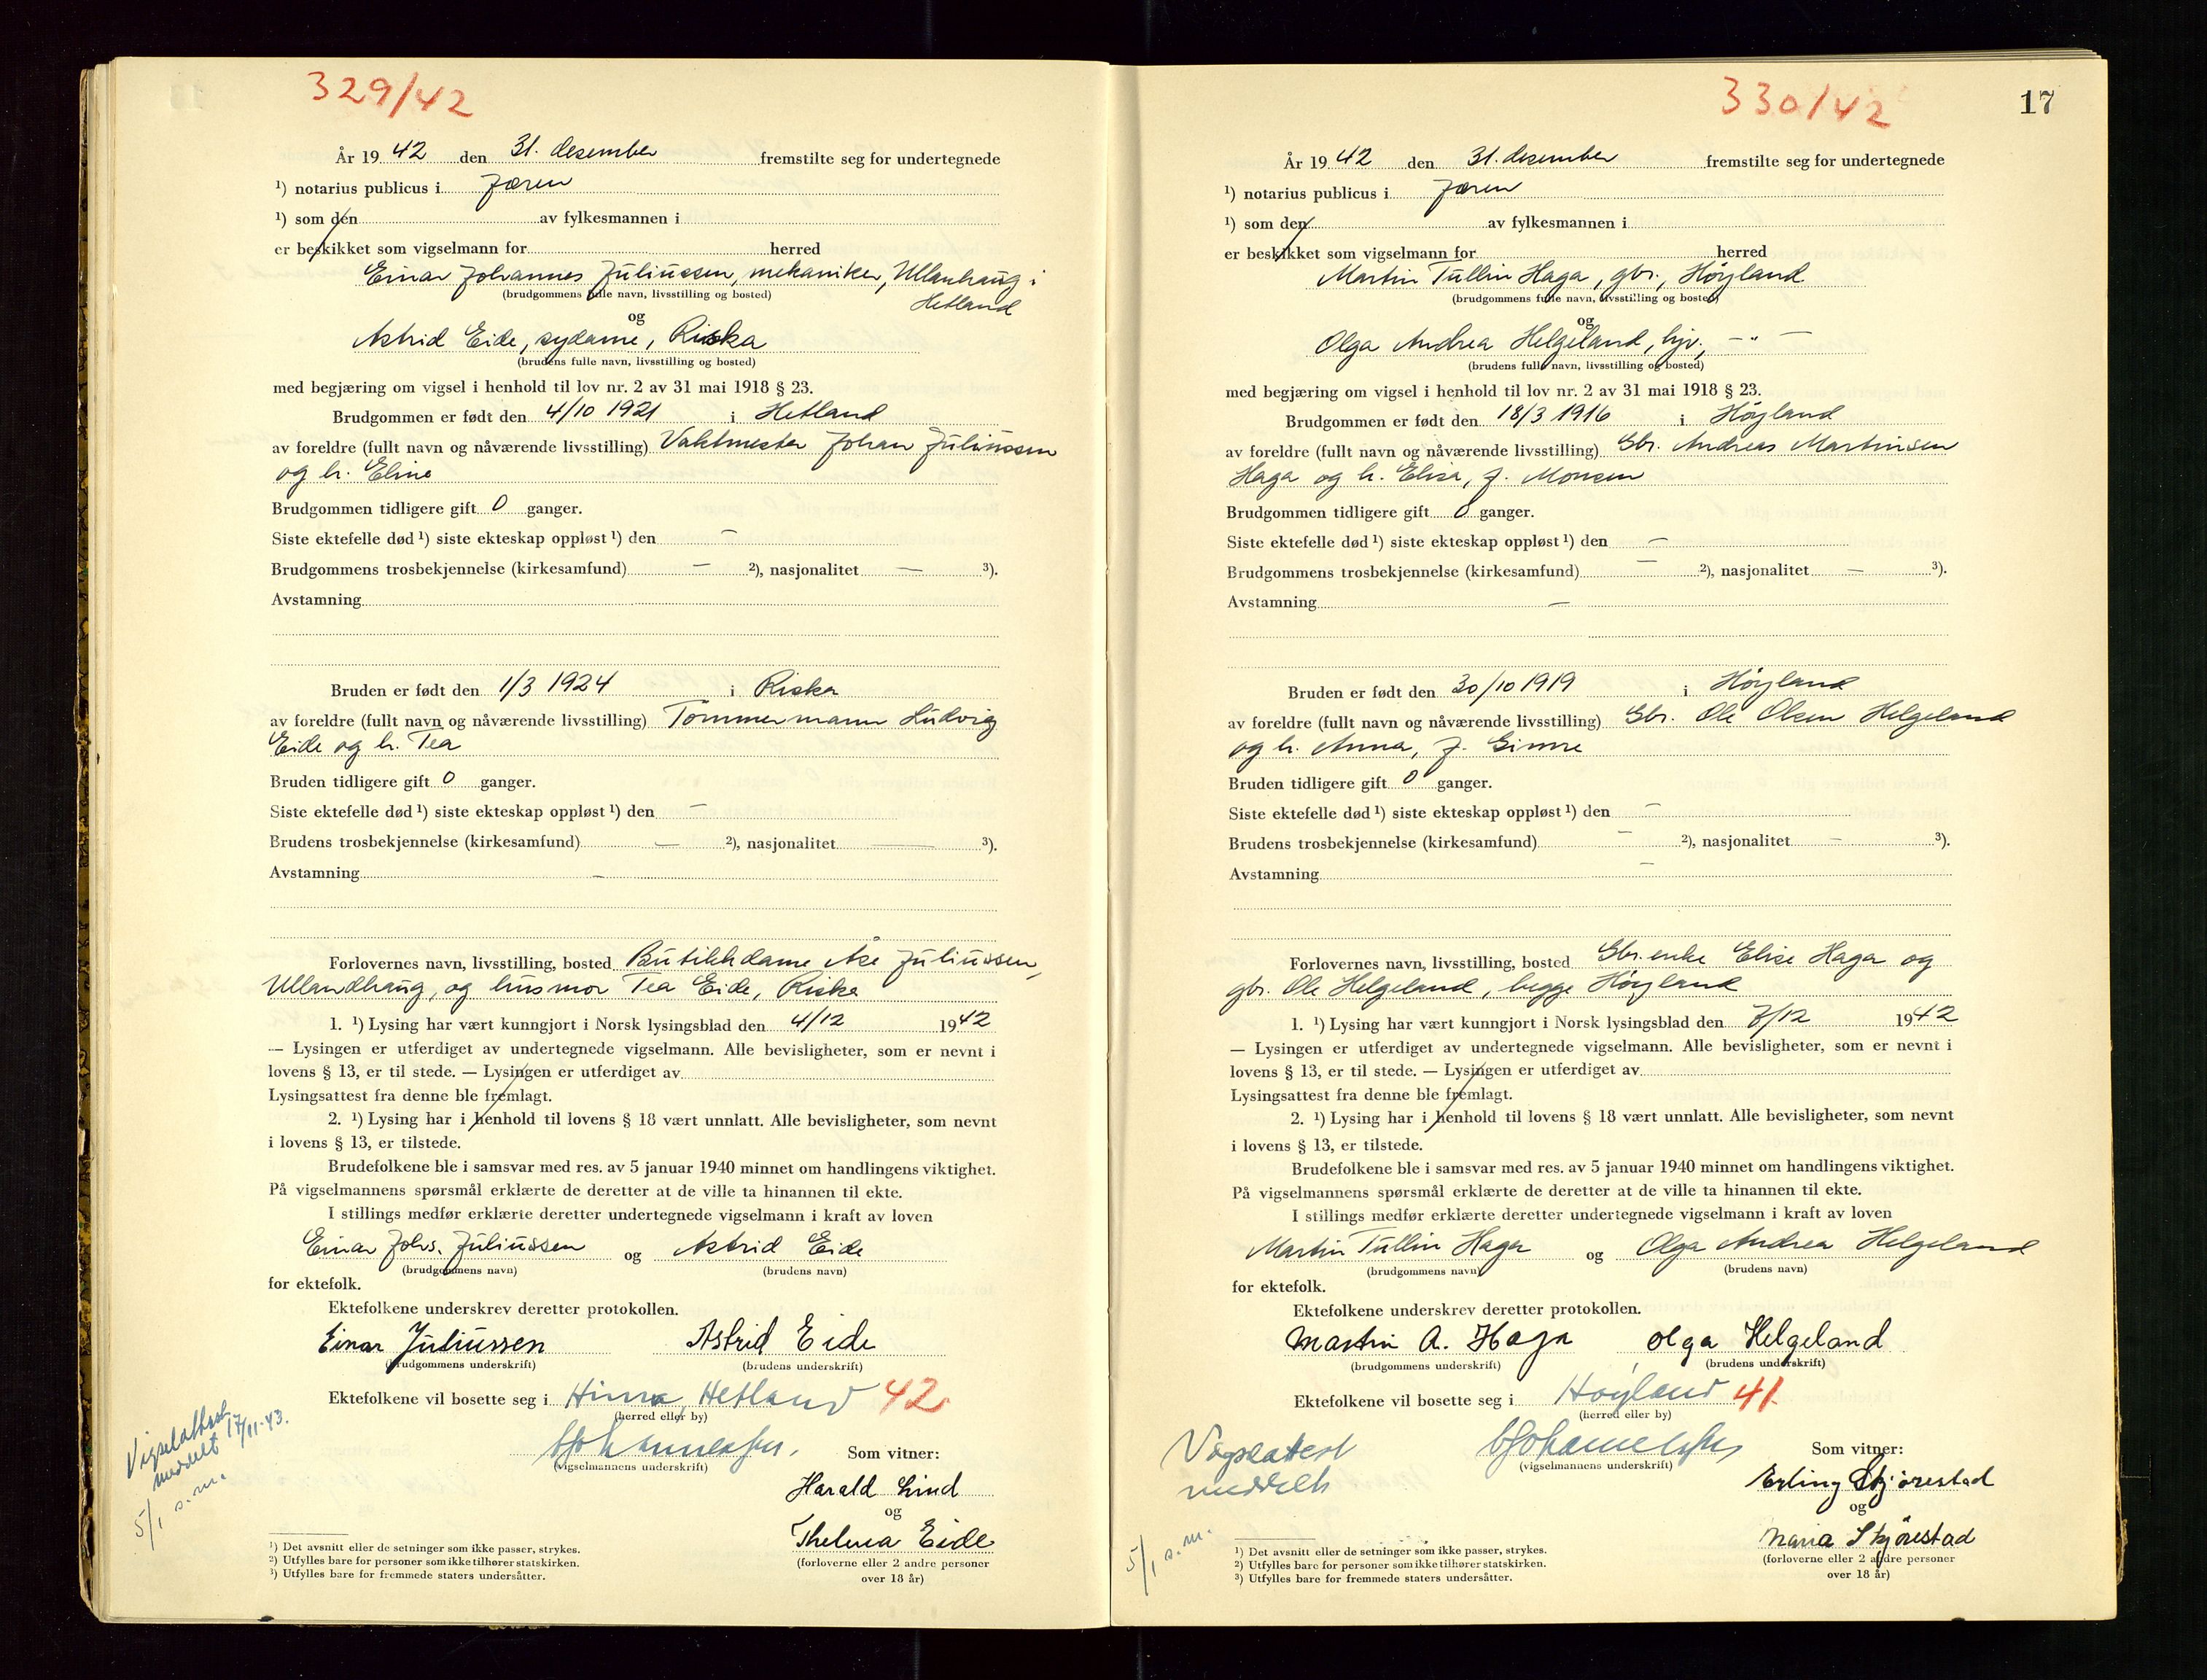 329/42
År 1942 den 31. desember fremstilte seg for undertegnede
¹) notarius publicus i Jæren
¹) som den av fylkesmannen i
er beskikket som vigselmann for herred
Einar Johannes Juliussen, mekaniker, Ullanhaug i
(brudgommens fulle navn, livsstilling og bosted)
Hetland
og
Astrid Eide, sydame, Riska
(brudens fulle navn, livsstilling og bosted)
med begjæring om vigsel i henhold til lov nr. 2 av 31 mai 1918 § 23.
Brudgommen er født den 4/10 1921 i Hetland
av foreldre (fullt navn og nåværende livsstilling) Vaktmester Johan Juliussen
og h. Eline
Brudgommen tidligere gift 0 ganger.
Siste ektefelle død ¹) siste ekteskap oppløst ¹) den —
Brudgommens trosbekjennelse (kirkesamfund) — ²), nasjonalitet — ³).
Avstamning
Bruden er født den 1/3 1924 i Riska
av foreldre (fullt navn og nåværende livsstilling) Tømmermann Ludvig
Eide og h. Tea
Bruden tidligere gift 0 ganger.
Siste ektefelle død ¹) siste ekteskap oppløst ¹) den —
Brudens trosbekjennelse (kirkesamfund) — ²), nasjonalitet — ³).
Avstamning —
Forlovernes navn, livsstilling, bosted Butikkdame Åse Juliussen,
Ullandhaug, og husmor Tea Eide, Riska
1. ¹) Lysing har vært kunngjort i Norsk lysingsblad den 4/12 1942
— Lysingen er utferdiget av undertegnede vigselmann. Alle bevisligheter, som er nevnt i
lovens § 13, er til stede. — Lysingen er utferdiget av
Lysingsattest fra denne ble fremlagt.
2. ¹) Lysing har i henhold til lovens § 18 vært unnlatt. Alle bevisligheter, som nevnt
i lovens § 13, er tilstede.
Brudefolkene ble i samsvar med res. av 5 januar 1940 minnet om handlingens viktighet.
På vigselmannens spørsmål erklærte de deretter at de ville ta hinannen til ekte.
I stillings medfør erklærte deretter undertegnede vigselmann i kraft av loven
Einar Johs. Juliussen og Astrid Eide
(brudgommens navn) (brudens navn)
for ektefolk.
Ektefolkene underskrev deretter protokollen.
Einar Juliussen Astrid Eide
(brudgommens underskrift) (brudens underskrift)
Ektefolkene vil bosette seg i Hinna, Hetland 42
(herred eller by)
Som vitner:
(vigselmannens underskrift)
Harald Lind
og
Thelma Eide
(forloverne eller 2 andre personer
over 18 år)
Vigselattest
meddelt 17/11-43.
5/1 s.m.
¹) Det avsnitt eller de setninger som ikke passer, strykes.
²) Utfylles bare for personer som ikke tilhører statskirken.
³) Utfylles bare for fremmede staters undersåtter.
330/42
17
År 1942 den 31. desember fremstilte seg for undertegnede
¹) notarius publicus i Jæren
¹) som den av fylkesmannen i
er beskikket som vigselmann for herred
Martin Tullin Haga, gbr., Høyland
(brudgommens fulle navn, livsstilling og bosted)
og
Olga Andrea Helgeland, hjv., — " —
(brudens fulle navn, livsstilling og bosted)
med begjæring om vigsel i henhold til lov nr. 2 av 31 mai 1918 § 23.
Brudgommen er født den 18/3 1916 i Høyland
av foreldre (fullt navn og nåværende livsstilling) Gbr. Andreas Martinsen
Haga og h. Elisa, f. Monsen
Brudgommen tidligere gift 0 ganger.
Siste ektefelle død ¹) siste ekteskap oppløst ¹) den —
Brudgommens trosbekjennelse (kirkesamfund) — ²), nasjonalitet — ³).
Avstamning —
Bruden er født den 30/10 1919 i Høyland
av foreldre (fullt navn og nåværende livsstilling) Gbr. Ole Olsen Helgeland
og h. Anna, f. Gimre
Bruden tidligere gift 0 ganger.
Siste ektefelle død ¹) siste ekteskap oppløst ¹) den —
Brudens trosbekjennelse (kirkesamfund) — ²), nasjonalitet — ³).
Avstamning —
Forlovernes navn, livsstilling, bosted Gbr.enke Elise Haga og
gbr. Ole Helgeland, begge Høyland
1. ¹) Lysing har vært kunngjort i Norsk lysingsblad den 7/12 1942
— Lysingen er utferdiget av undertegnede vigselmann. Alle bevisligheter, som er nevnt i
lovens § 13, er til stede. — Lysingen er utferdiget av
Lysingsattest fra denne ble fremlagt.
2. ¹) Lysing har i henhold til lovens § 18 vært unnlatt. Alle bevisligheter, som nevnt
i lovens § 13, er tilstede.
Brudefolkene ble i samsvar med res. av 5 januar 1940 minnet om handlingens viktighet.
På vigselmannens spørsmål erklærte de deretter at de ville ta hinannen til ekte.
I stillings medfør erklærte deretter undertegnede vigselmann i kraft av loven
Martin Tullin Haga og Olga Andrea Helgeland
(brudgommens navn) (brudens navn)
for ektefolk.
Ektefolkene underskrev deretter protokollen.
Martin A. Haga Olga Helgeland
(brudgommens underskrift) (brudens underskrift)
Ektefolkene vil bosette seg i Høyland 41
(herred eller by)
Som vitner:
(vigselmannens underskrift)
Erling Skjørestad
og
Maria Skjørestad
(forloverne eller 2 andre personer
over 18 år)
Vigselattest
meddelt
5/1 s.m.
¹) Det avsnitt eller de setninger som ikke passer, strykes.
²) Utfylles bare for personer som ikke tilhører statskirken.
³) Utfylles bare for fremmede staters undersåtter.